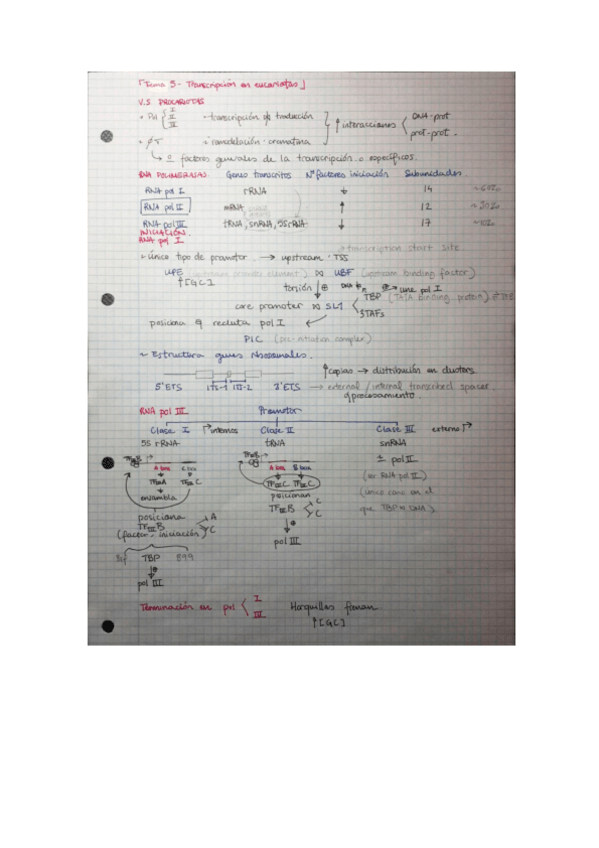 「Tema 5 - Transcripción en eucariotas」
V.S PROCARIOTAS
Pol { I II III
transcripción
traducción
↑ interacciones
DNA-prot
prot-prot.
remodelación cromatina
factores generales de la transcripción o específicos.
RNA POLIMERASAS. Genes transcritos Nº factores iniciación Subunidades.
RNA pol I rRNA ↓ 14
RNA pol II mRNA ↑ 12
RNA pol III tRNA, snRNA, 5S rRNA ↓ 17
INICIACIÓN
RNA pol I
transcription start site
único tipo de promotor → upstream TSS
UPE (upstream promoter element) ⋈ UBF (upstream binding factor)
↑[GC]
torsión ⊕ DNA
une pol I
core promoter ⋈ SL1
TBP (TATA binding protein)
STAFs
posiciona y recluta pol I
PIC (pre-initiation complex)
Estructura genes ribosomales.
↑copias → distribución en clusters
5'ETS ITS-1 ITS-2 3'ETS → external / internal transcribed spacer
procesamiento.
RNA pol III. Promotor
Clase I internos Clase II Clase III externo
5S rRNA tRNA snRNA
TFIIIB TFIIIB
± pol II
A box C box A box B box
(en RNA pol II)
TFIIIA TFIIIC TFIIIC TFIIIC
(único caso en el
ensambla posicionan
que TBP ⋈ DNA).
posiciona TFIIIB C C
TFIIIB A C
(factor iniciación)
pol III
Brf TBP B99
pol III
Terminación en pol I III Horquillas forman
↑[GC]